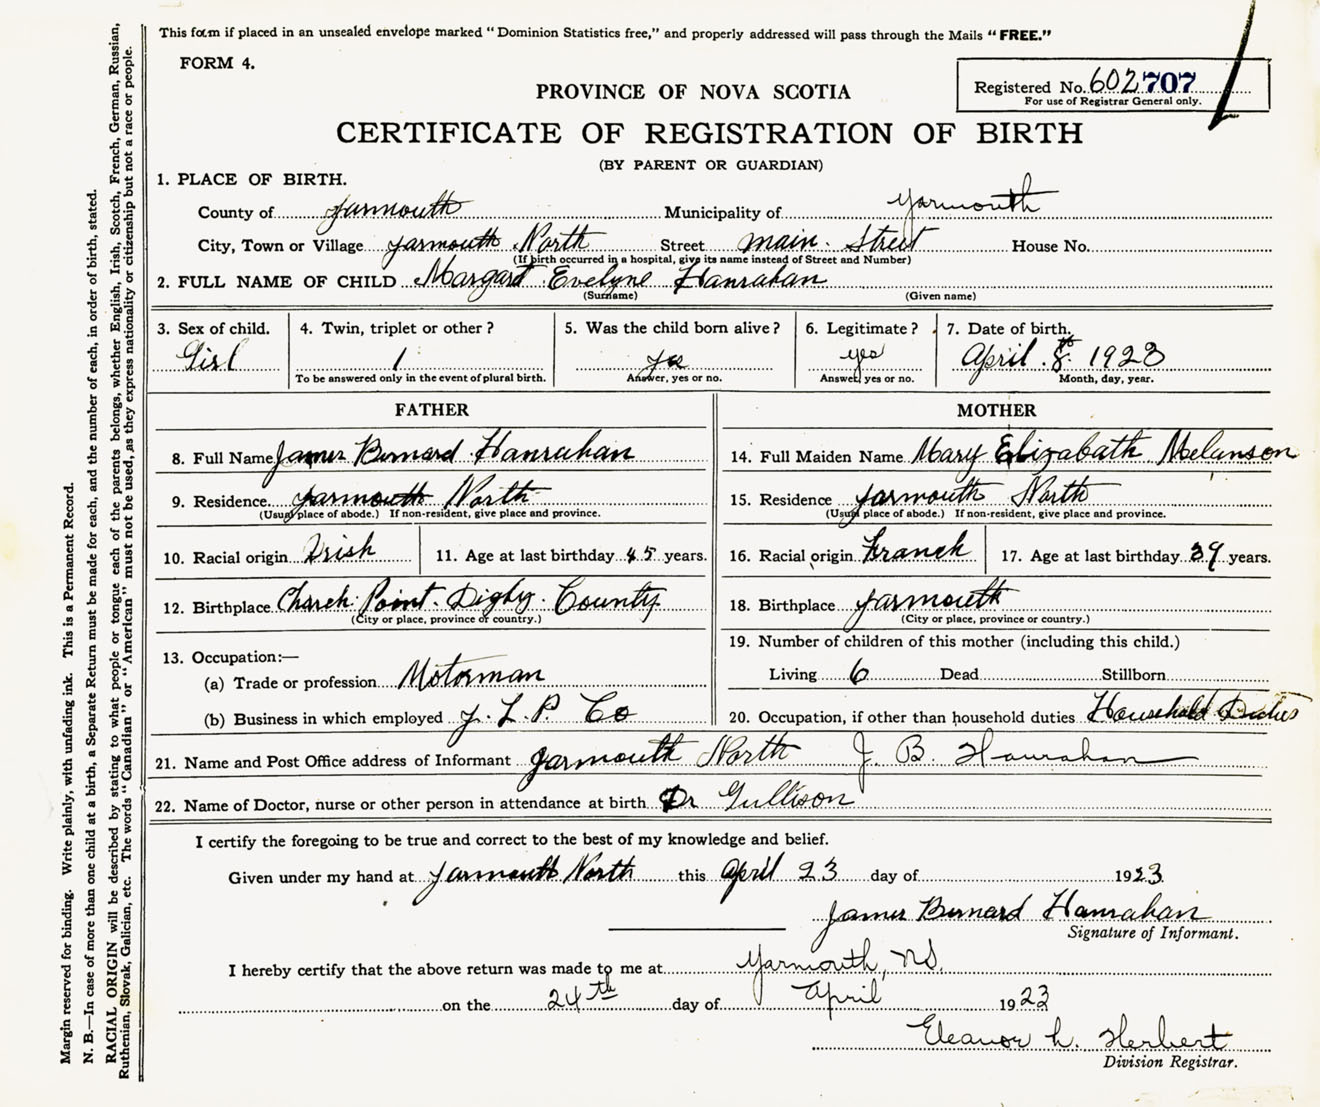 This form if placed in an unsealed envelope marked "Dominion Statistics free," and properly addressed will pass through the Mails "FREE."
FORM 4.
Registered No. 602707
For use of Registrar General only.
PROVINCE OF NOVA SCOTIA
CERTIFICATE OF REGISTRATION OF BIRTH
(BY PARENT OR GUARDIAN)
1. PLACE OF BIRTH.
County of Yarmouth Municipality of Yarmouth
City, Town or Village Yarmouth North Street Main Street House No.
(If birth occurred in a hospital, give its name instead of Street and Number)
2. FULL NAME OF CHILD Margart Evelyne Hanrahan
(Surname) (Given name)
3. Sex of child. 4. Twin, triplet or other? 5. Was the child born alive? 6. Legitimate? 7. Date of birth.
Girl 1 yes yes April 8th 1923
To be answered only in the event of plural birth. Answer, yes or no. Answer, yes or no. Month, day, year.
FATHER
8. Full Name James Bernard Hanrahan
9. Residence Yarmouth North
(Usual place of abode.) If non-resident, give place and province.
10. Racial origin Irish 11. Age at last birthday 45 years.
12. Birthplace Church Point Digby County
(City or place, province or country.)
13. Occupation:—
(a) Trade or profession Motorman
(b) Business in which employed Y. L. P. Co
MOTHER
14. Full Maiden Name Mary Elizabath Melanson
15. Residence Yarmouth North
(Usual place of abode.) If non-resident, give place and province.
16. Racial origin Franch 17. Age at last birthday 39 years.
18. Birthplace Yarmouth
(City or place, province or country.)
19. Number of children of this mother (including this child.)
Living 6 Dead Stillborn
20. Occupation, if other than household duties Household Duties
21. Name and Post Office address of Informant Yarmouth North J. B. Hanrahan
22. Name of Doctor, nurse or other person in attendance at birth Dr Gullison
I certify the foregoing to be true and correct to the best of my knowledge and belief.
Given under my hand at Yarmouth North this April 23 day of 1923
James Bernard Hanrahan
Signature of Informant.
I hereby certify that the above return was made to me at Yarmouth, N.S.
on the 24th day of April 1923
Eleanor h. Herbert
Division Registrar.
Margin reserved for binding. Write plainly, with unfading ink. This is a Permanent Record.
N. B.—In case of more than one child at a birth, a Separate Return must be made for each, and the number of each, in order of birth, stated.
RACIAL ORIGIN will be described by stating to what people or tongue each of the parents belongs, whether English, Irish, Scotch, French, German, Russian,
Ruthenian, Slovak, Galician, etc. The words "Canadian" or "American" must not be used, as they express nationality or citizenship but not a race or people.